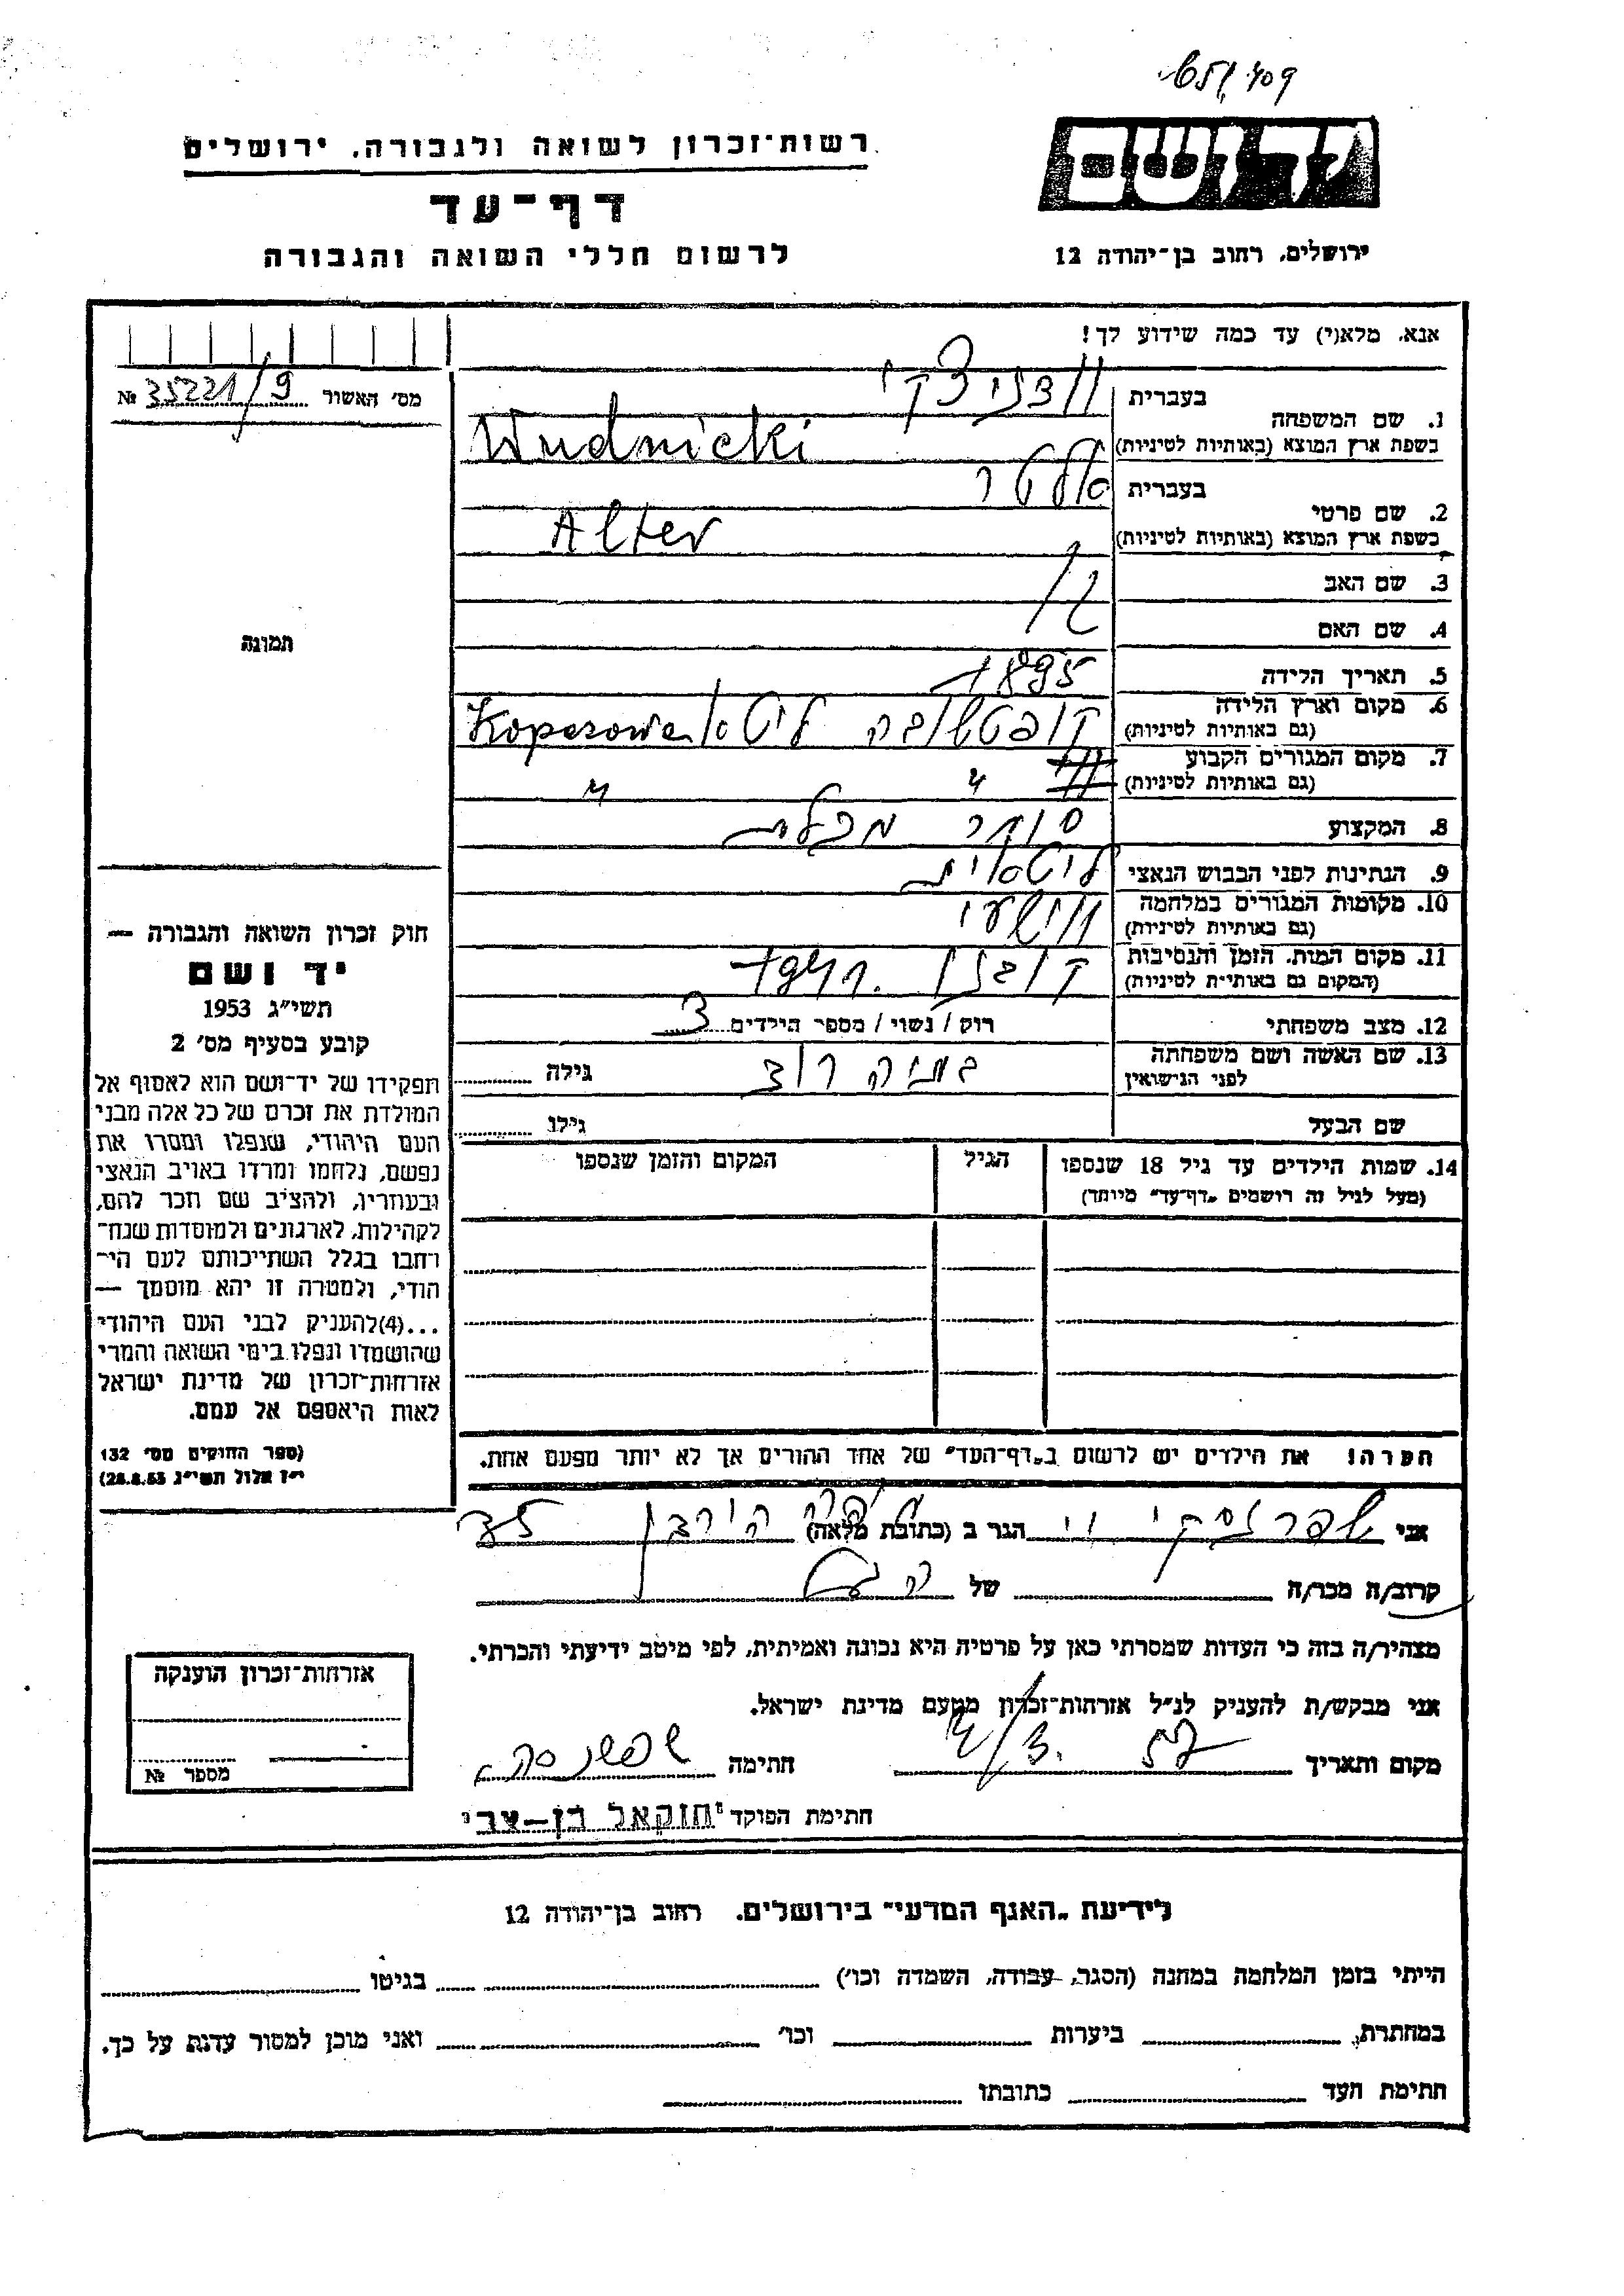 יד ושם
רשות־זכרון לשואה ולגבורה, ירושלים
דף־עד
לרשום חללי השואה והגבורה
ירושלים, רחוב בן־יהודה 12
אנא, מלא(י) עד כמה שידוע לך!
מס׳ האשור № 35221/9
1. שם המשפחה
בעברית
בשפת ארץ המוצא (באותיות לטיניות) Wudnicki
2. שם פרטי
בעברית אלטר
בשפת ארץ המוצא (באותיות לטיניות) Alter
3. שם האב
4. שם האם
5. תאריך הלידה 1895
6. מקום וארץ הלידה
(גם באותיות לטיניות)
7. מקום המגורים הקבוע
(גם באותיות לטיניות)
8. המקצוע סוחר מכלת
9. הנתינות לפני הכבוש הנאצי ליטאית
10. מקומות המגורים במלחמה
(גם באותיות לטיניות)
11. מקום המות, הזמן והנסיבות 1941
(המקום גם באותיות לטיניות)
12. מצב משפחתי רווק / נשוי / מספר הילדים 3
13. שם האשה ושם משפחתה
לפני הנישואין
גילה
שם הבעל גילו
14. שמות הילדים עד גיל 18 שנספו הגיל המקום והזמן שנספו
(מעל לגיל זה רושמים „דף־עד״ מיוחד)
תמונה
חוק זכרון השואה והגבורה —
יד ושם
תשי״ג 1953
קובע בסעיף מס׳ 2
תפקידו של יד־ושם הוא לאסוף אל
המולדת את זכרם של כל אלה מבני
העם היהודי, שנפלו ומסרו את
נפשם, נלחמו ומרדו באויב הנאצי
ובעוזריו, ולהציב שם וזכר להם,
לקהילות, לארגונים ולמוסדות שנח־
רחבו בגלל השתייכותם לעם הי־
הודי, ולמטרה זו יהא מוסמך —
...(4)להעניק לבני העם היהודי
שהושמדו ונפלו בימי השואה והמרי
אזרחות־זכרון של מדינת ישראל
לאות היאספם אל עמם.
(ספר החוקים מס׳ 132
י״ז אלול תשי״ג 28.8.53)
הערה! את הילדים יש לרשום ב„דף־העד״ של אחד ההורים אך לא יותר מפעם אחת.
אני הגר ב (כתובת מלאה)
קרוב/ה מכר/ה של
מצהיר/ה בזה כי העדות שמסרתי כאן על פרטיה היא נכונה ואמיתית, לפי מיטב ידיעתי והכרתי.
אני מבקש/ת להעניק לנ״ל אזרחות־זכרון מטעם מדינת ישראל.
מקום ותאריך חתימה
חתימת הפוקד יחזקאל בן–צבי
אזרחות־זכרון הוענקה
מספר №
לידיעת „האגף המדעי״ בירושלים, רחוב בן־יהודה 12
הייתי בזמן המלחמה במחנה (הסגר, עבודה, השמדה וכו׳) בגיטו
במחתרת, ביערות וכו׳ ואני מוכן למסור עדות על כך.
חתימת העד כתובתו